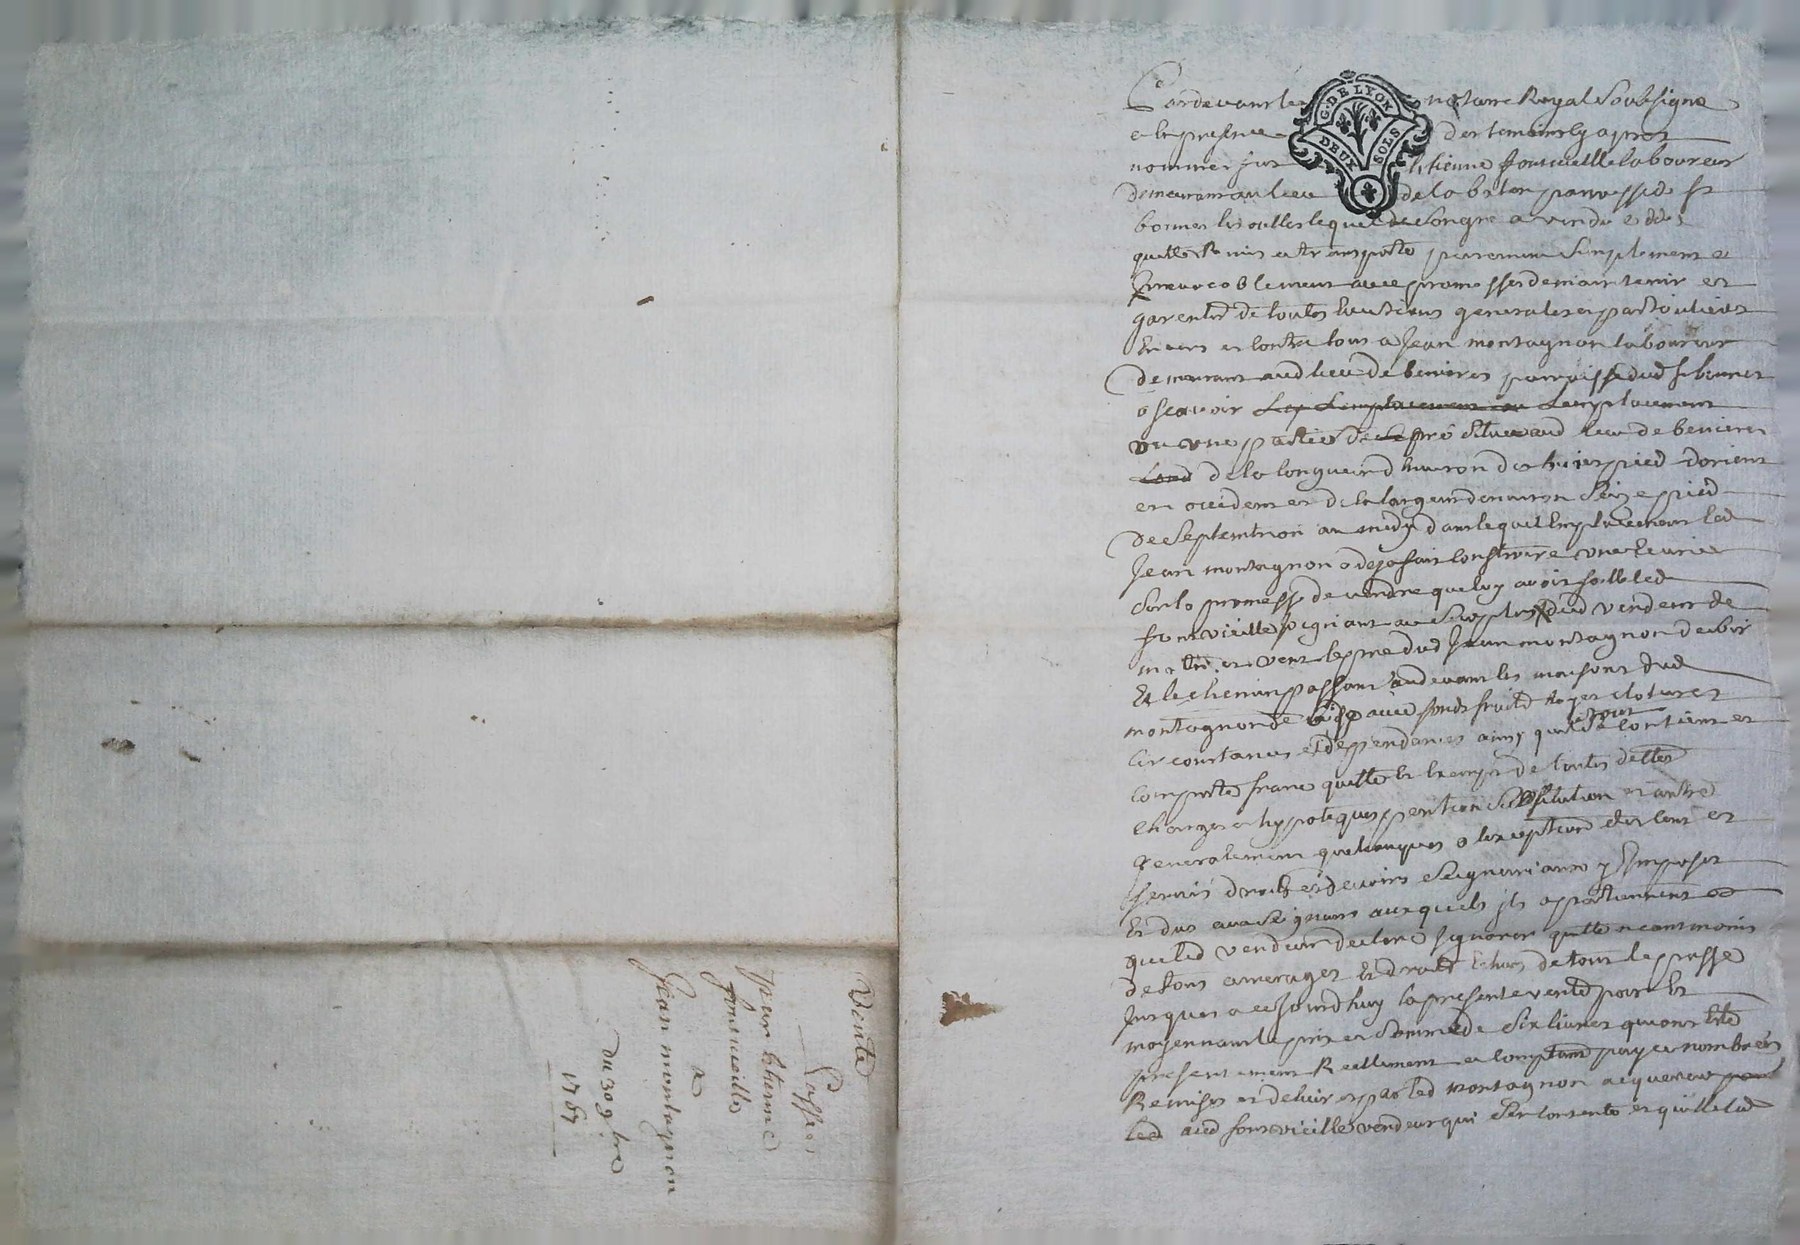 Pardevant le notaire Royal Soubsigne
et en presence des temoins cy apres
nommes fut Ethienne fontvieille laboureur
demeurant au lieu de parroisse de st
bonnet les oulles lequel de son gre a vendu et
quitte Remis et transporte purement simplement et
Irrevocablement avec promesses de maintenir et
garentir de toutes evictions generales et particulieres
Envers et contre tous a Jean montagnon laboureur
demeurant aud lieu de parroisse dud st bonnet
a scavoir Lemplacement
ou une partie de pré situé aud lieu de
de la longueur d'environ pied dorient
en occident et de la largeur denviron seize pied
de Septentrion au midy dans lequel Emplacement led
Jean montagnon a deja fait construire une Ecurie
Sur la promesse de vendre que luy avoit fait led
fontvieille joignant au surplus dud vendeur de
matin et vent le pre dud Jean montagnon de soir
Et le chemin passant au devant les maisons dud
montagnon de bise avec fonds fruits clotures
circonstances et dependances ainsy quil se contient et
comporte franc quitte et exempt de toutes dettes
charges et hypoteques petition substitution et autre
generalement quelconques a lexception des cens et
servis droits et devoirs seigneuriaux y Imposes
Et dus aux seigneurs auxquels ils appartiennent et
que led vendeur declare Ignorer quitte neantmoins
de tous arrerages Et droits Echus de tout le passe
Jusques a ce Jourdhuy la presente vente pour et
moyennant le prix et somme de six livres qui ont Eté
presentement Reellement et comptant payes nombrés
Remises et delivres par led montagnon acquereur
aud fontvieille vendeur qui sen contente et quitte led
G. DE LYON
DEUX SOLS
Vente
passee
par Ethienne
fontvieille
a
Jean montagnon
du 30 9bre
1767